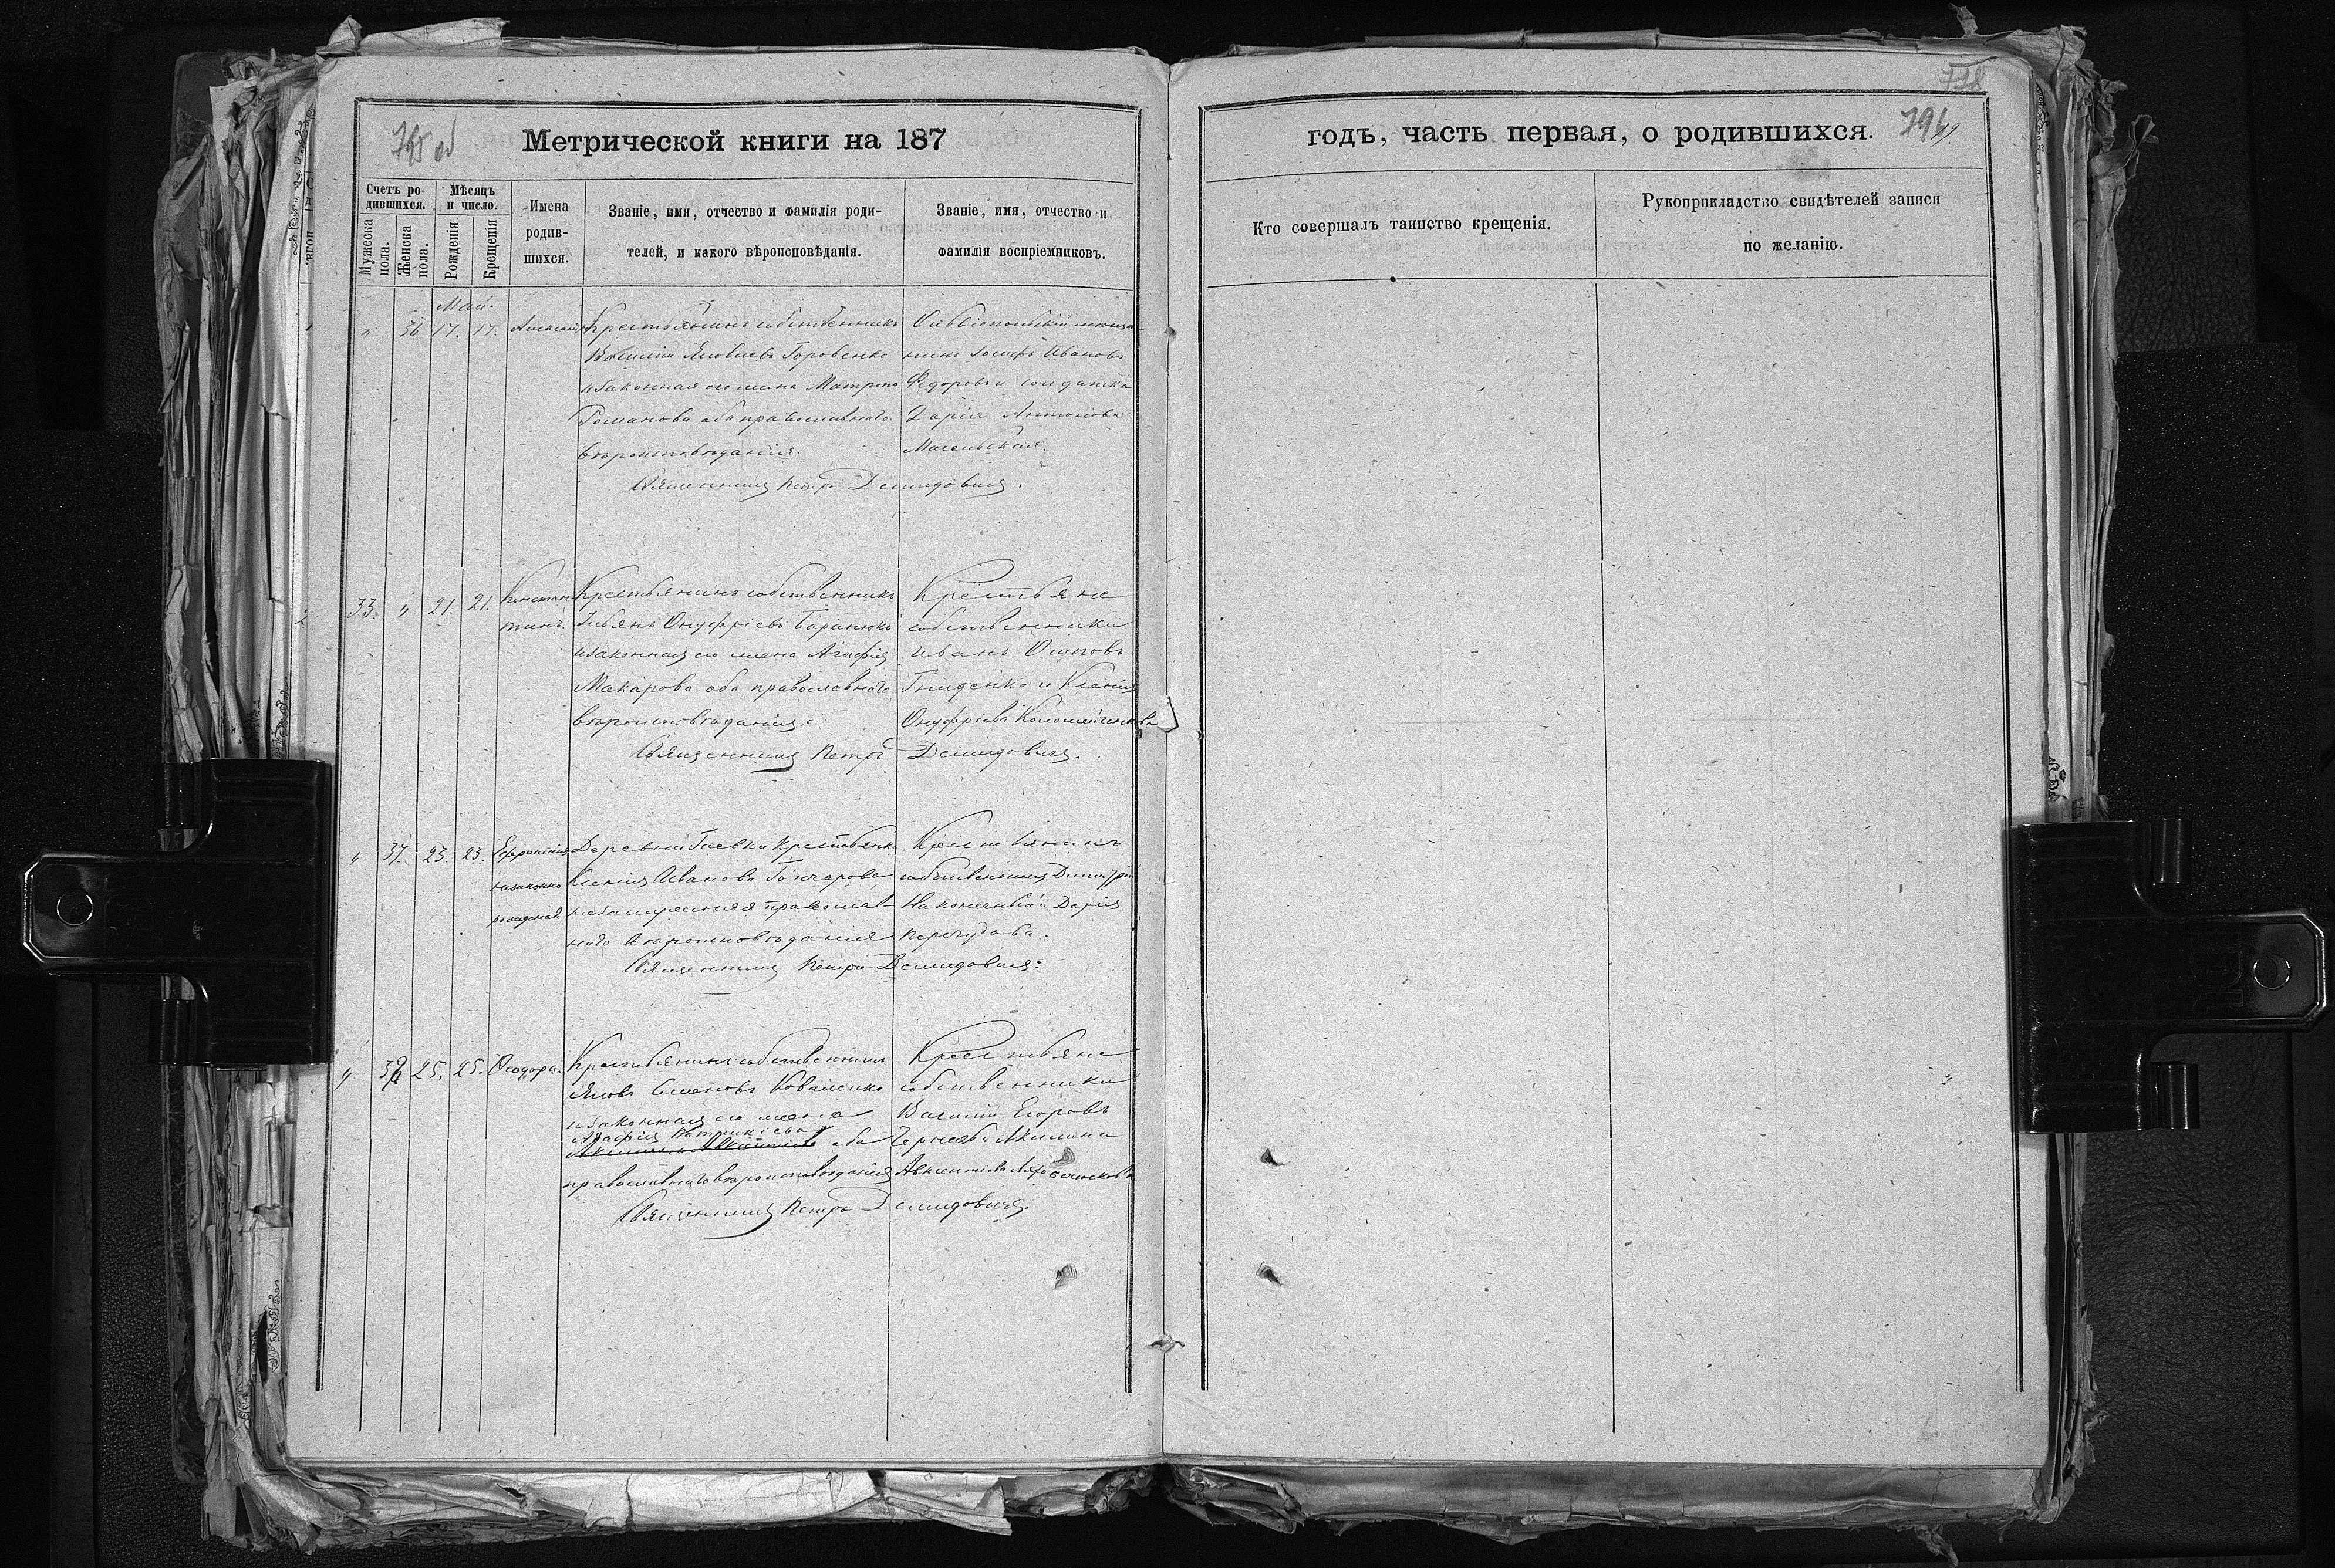 795 об
Метрической книги на 187
Счетъ ро-
дившихся.
Мѣсяцъ
и число.
Мужеска
пола.
Женска
пола.
Рожденія
Крещенія
Имена
родив-
шихся.
Званіе, имя, отчество и фамилія роди-
телей, и какого вѣроисповѣданія.
Званіе, имя, отчество и
фамилія воспріемниковъ.
Май.
" 36 17. 17.
Крестьянинъ собственникъ
Василій Яковлевъ Горовенко
и законная его жена Матрона
Романова оба православнаго
вѣроисповѣданія.
Ольвіопольскій мѣща-
нинъ Іосифъ Ивановъ
Федоровъ и солдатка
Дарія Антонова
Священникъ Петръ Демидовичъ.
33. " 21. 21. Констан-
тинъ.
Крестьянинъ собственникъ
Онуфріевъ Баранюкъ
и законная его жена Агафія
Макарова оба православнаго
вѣроисповѣданія.
Крестьяне
собственники
Иванъ Осиповъ
и Ксенія
Онуфріева
Священникъ Петръ Демидовичъ.
" 37. 23. 23. Ефросинія
незаконно
рожденная
Деревни Гаевки крестьянка
Ксенія Иванова Гончарова
православ-
наго вѣроисповѣданія
Крестьянинъ
собственникъ Димитрій
и Дарія
Священникъ Петръ Демидовичъ.
" 38 25. 25. Ѳеодора.
Крестьянинъ собственникъ
Яковъ Семеновъ Коваленко
и законная его жена
Агафія Патрикіева
оба
православнаго вѣроисповѣданія
Крестьяне
собственники
Василій Егоровъ
и Акилина
Авксентіева
Священникъ Петръ Демидовичъ.
718
годъ, часть первая, о родившихся.
796
Кто совершалъ таинство крещенія.
Рукоприкладство свидѣтелей записи
по желанію.